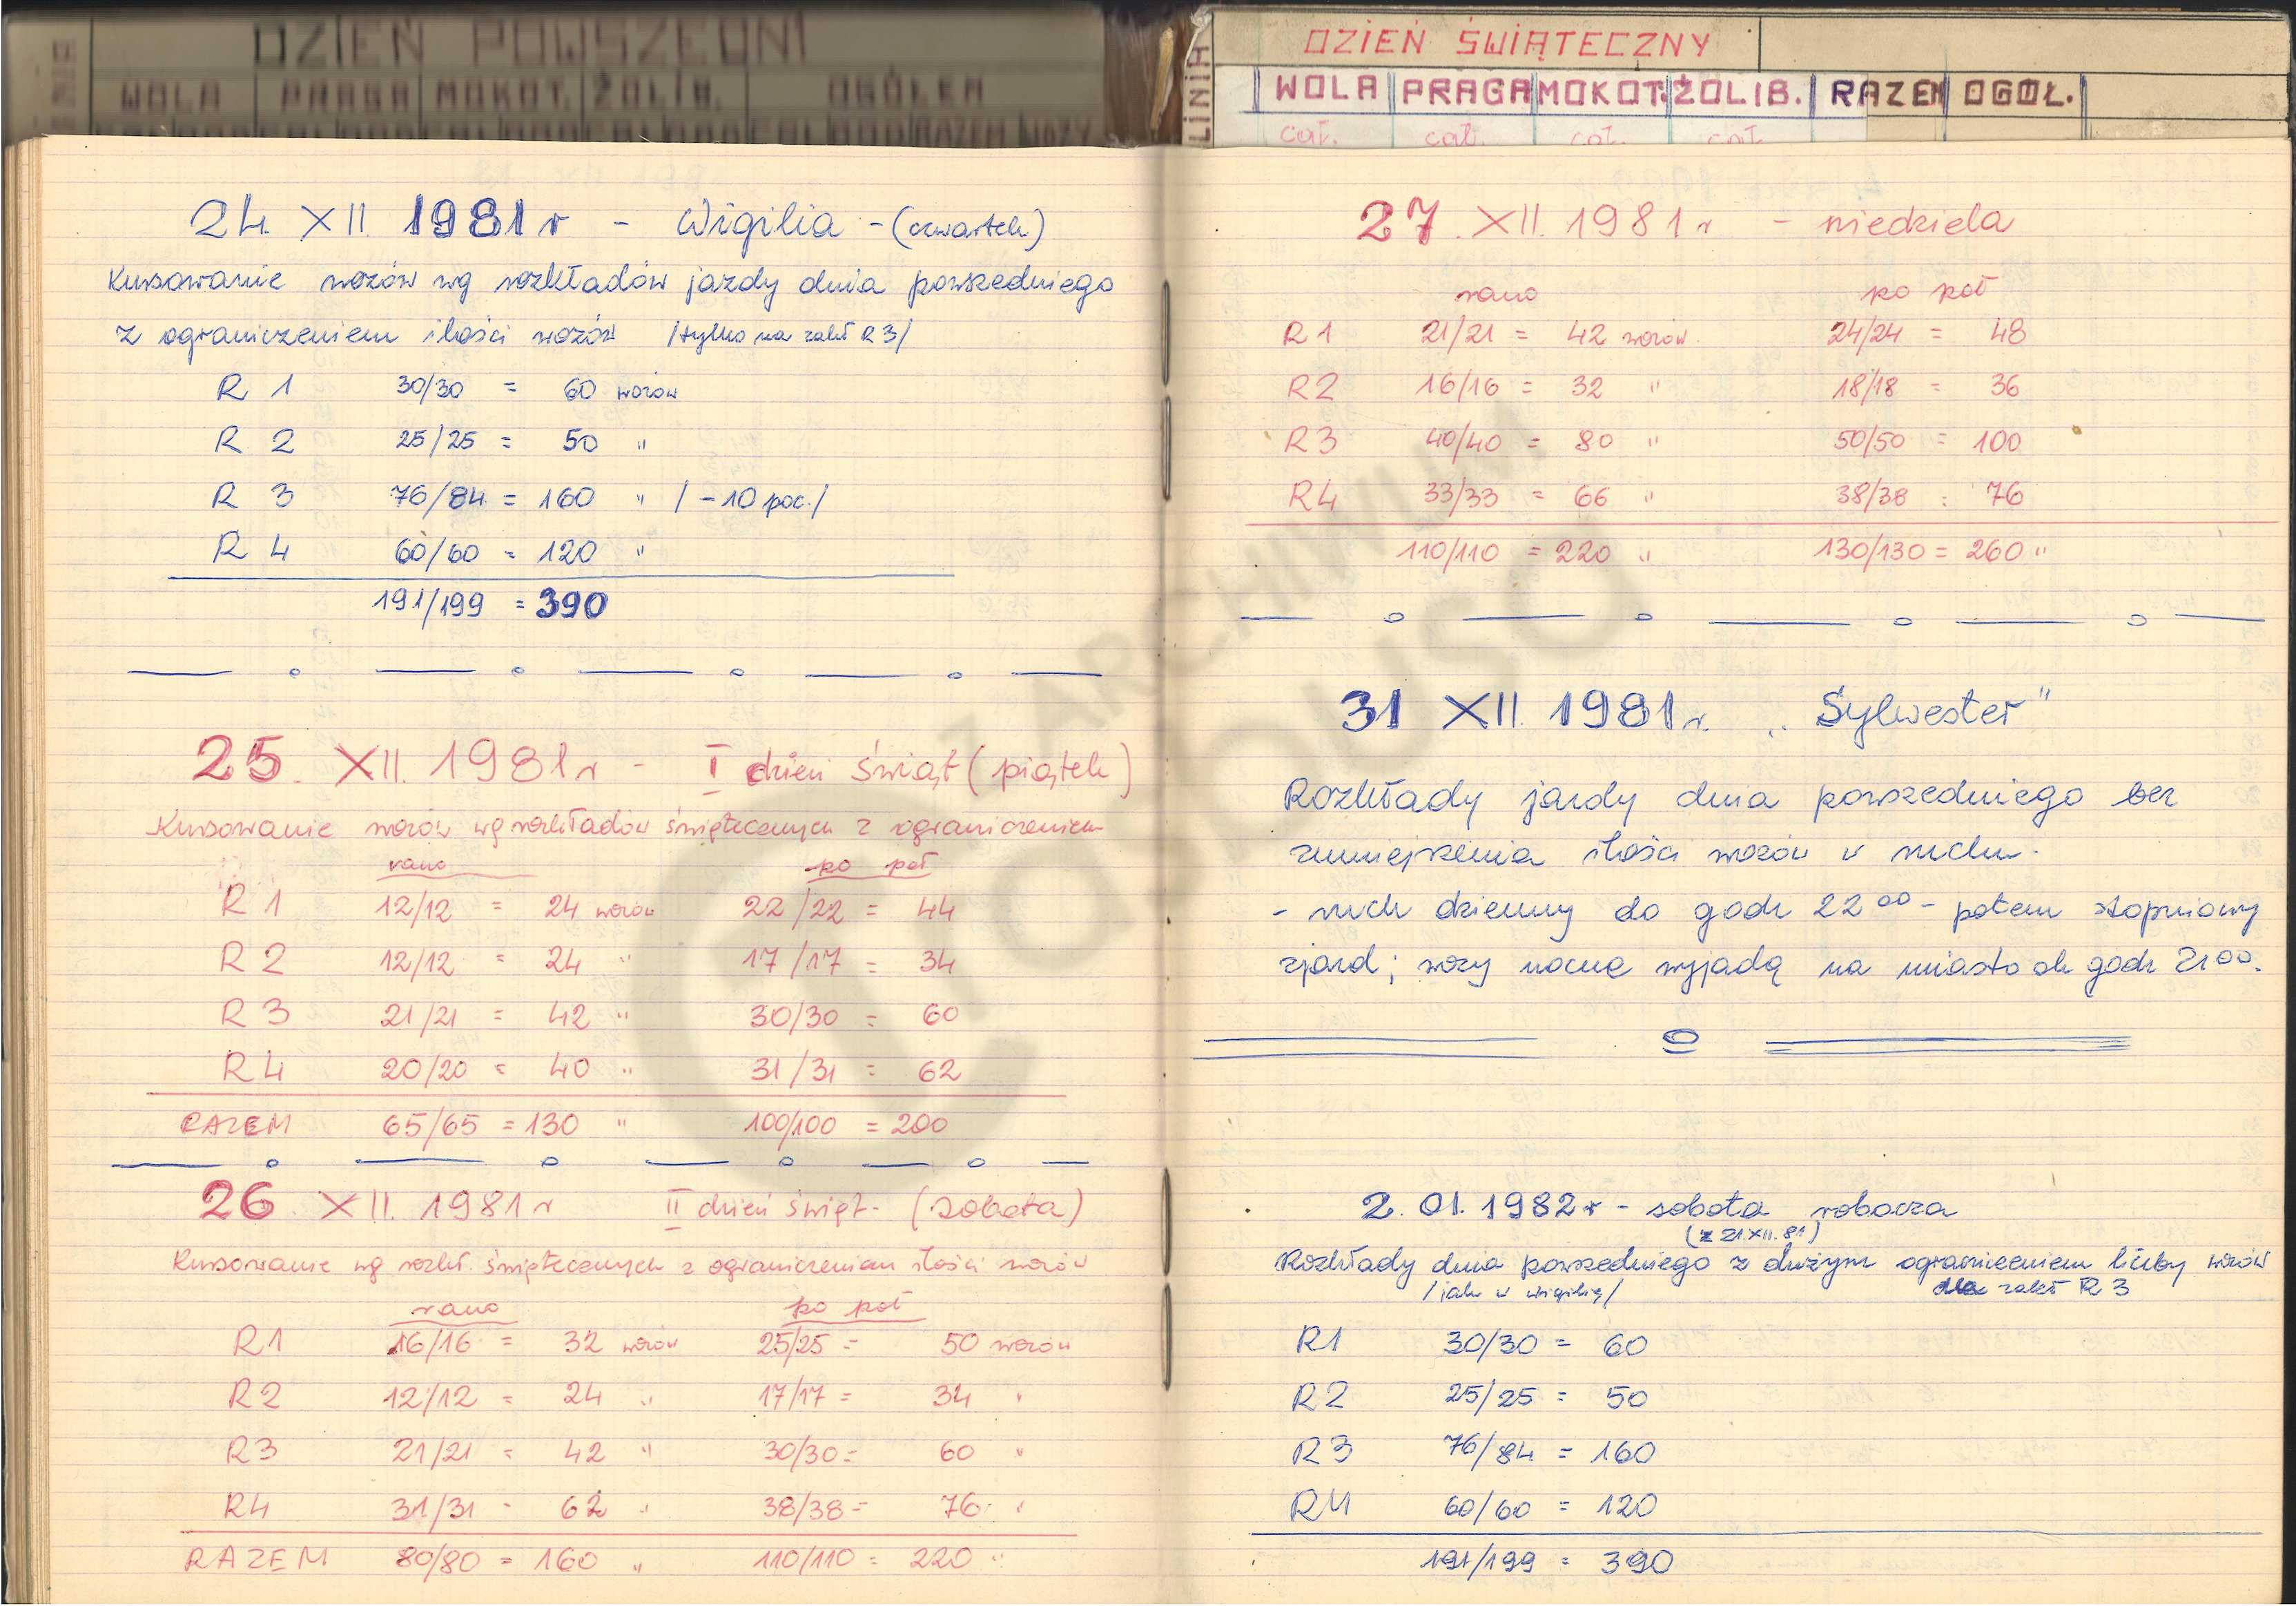 DZIEŃ POWSZEDNI
WOLA PRAGA MOKOT. ŻOLIB. OGÓŁEM
24. XII. 1981 r - Wigilia - (czwartek)
Kursowanie wozów wg rozkładów jazdy dnia powszedniego
z ograniczeniem ilości wozów /tylko na zakł R3/
R 1 30/30 = 60 wozów
R 2 25/25 = 50 "
R 3 76/84 = 160 " / -10 poc./
R 4 60/60 = 120 "
191/199 = 390
25. XII. 1981 r - I dzień Świąt (piątek)
Kursowanie wozów wg rozkładów świątecznych z ograniczeniem
rano po poł
R 1 12/12 = 24 wozów 22/22 = 44
R 2 12/12 = 24 " 17/17 = 34
R 3 21/21 = 42 " 30/30 = 60
R 4 20/20 = 40 " 31/31 = 62
RAZEM 65/65 = 130 " 100/100 = 200
26 XII. 1981 r II dzień świąt - (sobota)
Kursowanie wg rozkł. świątecznych z ograniczeniem ilości wozów
rano po poł
R1 16/16 = 32 wozów 25/25 = 50 wozów
R2 12/12 = 24 " 17/17 = 34 "
R3 21/21 = 42 " 30/30 = 60 "
R4 31/31 - 62 " 38/38 = 76 "
RAZEM 80/80 = 160 " 110/110 = 220 "
LINIA
DZIEŃ ŚWIĄTECZNY
WOLA PRAGA MOKOT. ŻOLIB. RAZEM OGÓŁ.
cał. cał. cał. cał.
27. XII. 1981 r - niedziela
rano po poł
R 1 21/21 = 42 wozów 24/24 = 48
R2 16/16 = 32 " 18/18 = 36
R3 40/40 = 80 " 50/50 = 100
R4 33/33 = 66 " 38/38 = 76
110/110 = 220 " 130/130 = 260 "
31 XII. 1981 r. „Sylwester"
Rozkłady jazdy dnia powszedniego bez
zmniejszenia ilości wozów w ruchu.
- ruch dzienny do godz 22 00 - potem stopniowy
zjazd; wozy nocne wyjadą na miasto ok godz 21 00.
2. 01. 1982 r - sobota robocza
(z 21.XII.81)
Rozkłady dnia powszedniego z dużym ograniczeniem liczby wozów
/jak w wigilię/ dla zakł R 3
R1 30/30 = 60
R2 25/25 = 50
R3 76/84 = 160
R4 60/60 = 120
191/199 = 390